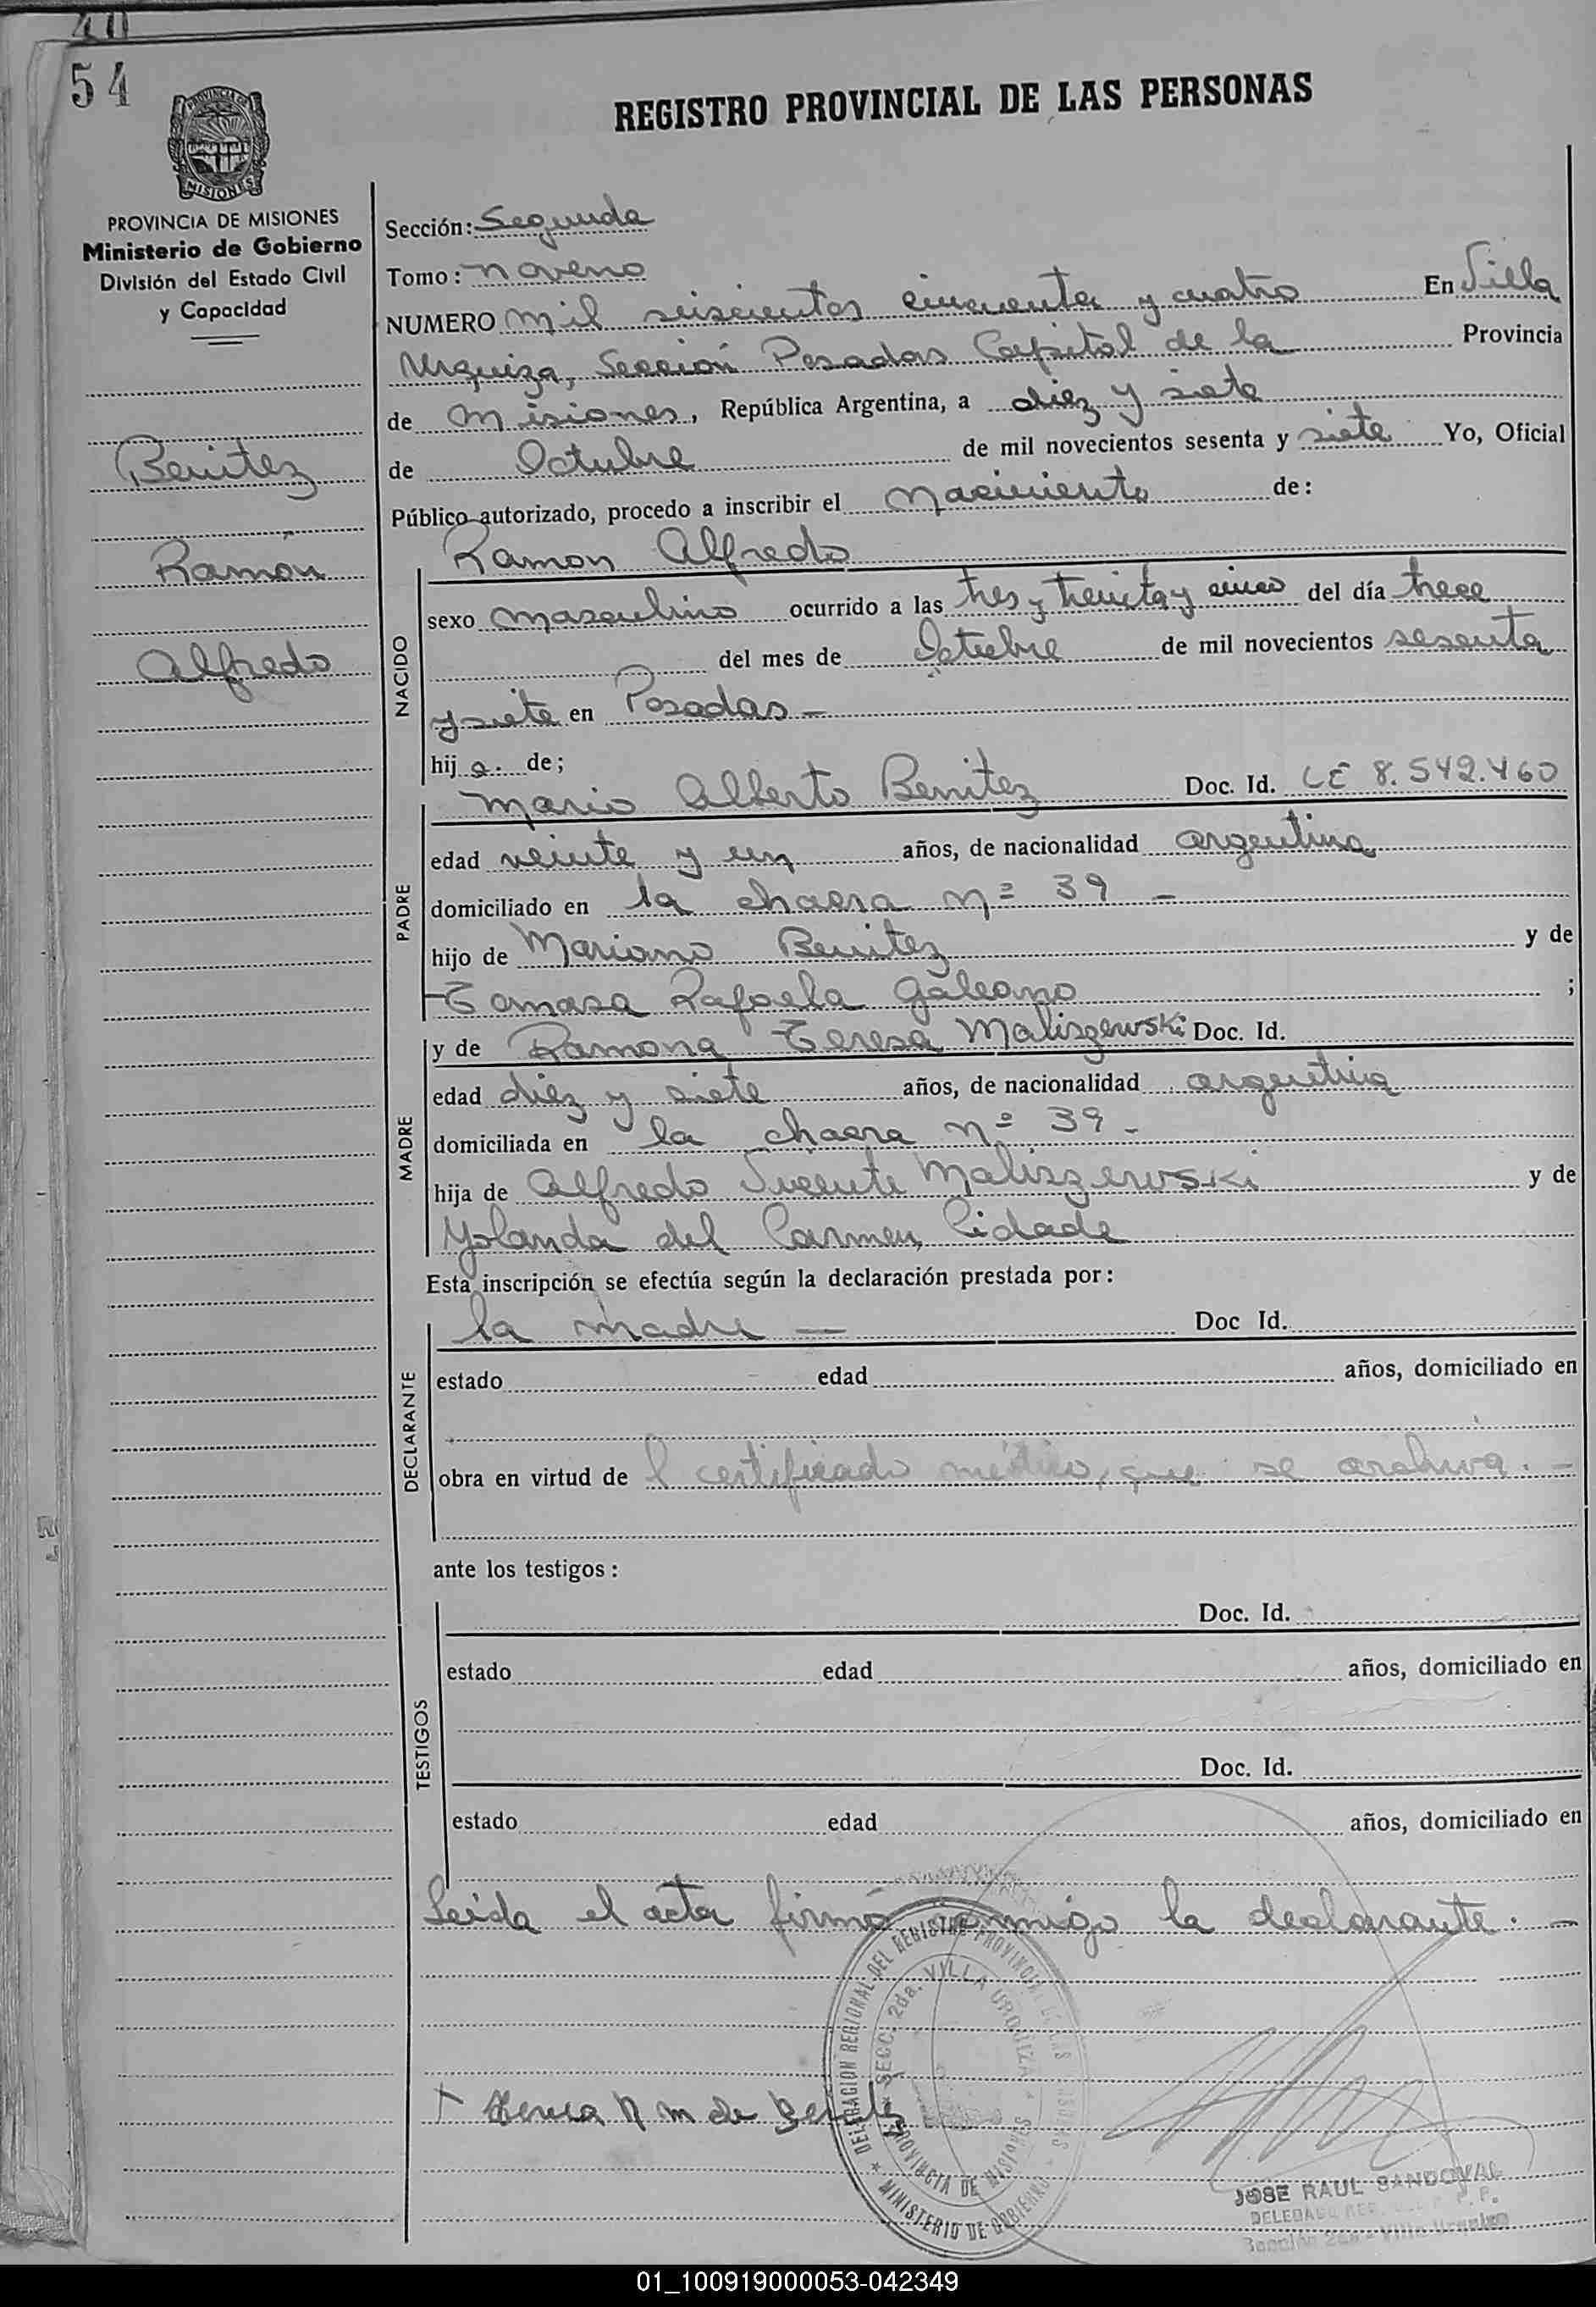 54
REGISTRO PROVINCIAL DE LAS PERSONAS
PROVINCIA DE MISIONES
MISIONES
PROVINCIA DE MISIONES
Ministerio de Gobierno
División del Estado Civil
y Capacidad
Benitez
Ramón
Alfredo
Sección: Segunda
Tomo: noveno
NUMERO mil seiscientos cincuenta y cuatro En Villa
Urquiza, Sección Posadas Capital de la Provincia
de Misiones, República Argentina, a diez y siete
de Octubre de mil novecientos sesenta y siete Yo, Oficial
Público autorizado, procedo a inscribir el Nacimiento de:
NACIDO
Ramon Alfredo
sexo masculino ocurrido a las tres y treinta y cinco del día trece
del mes de Octubre de mil novecientos sesenta
y siete en Posadas -
hij o. de;
PADRE
Mario Alberto Benitez Doc. Id. LE 8.542.460
edad veinte y un años, de nacionalidad argentina
domiciliado en la chacra nº 39 -
hijo de Mariano Benitez y de
Tomasa Rafaela Galeano ;
MADRE
y de Ramona Teresa Maliszewski Doc. Id.
edad diez y siete años, de nacionalidad argentina
domiciliada en la chacra nº 39 -
hija de Alfredo Vicente Maliszewski y de
Yolanda del Carmen Cidade
Esta inscripción se efectúa según la declaración prestada por:
DECLARANTE
la madre - Doc Id.
estado edad años, domiciliado en
obra en virtud de l certificado médico, que se archiva. -
ante los testigos:
TESTIGOS
Doc. Id.
estado edad años, domiciliado en
Doc. Id.
estado edad años, domiciliado en
Leida el acta firmó conmigo la declarante. -
DELEGACION REGIONAL DEL REGISTRO PROVINCIAL DE LAS PERSONAS
SECC. 2da. VILLA URQUIZA
PROVINCIA DE MISIONES
MINISTERIO DE GOBIERNO
M de Benitez
JOSE RAUL SANDOVAL
Sección 2da - Villa Urquiza
01_100919000053-042349